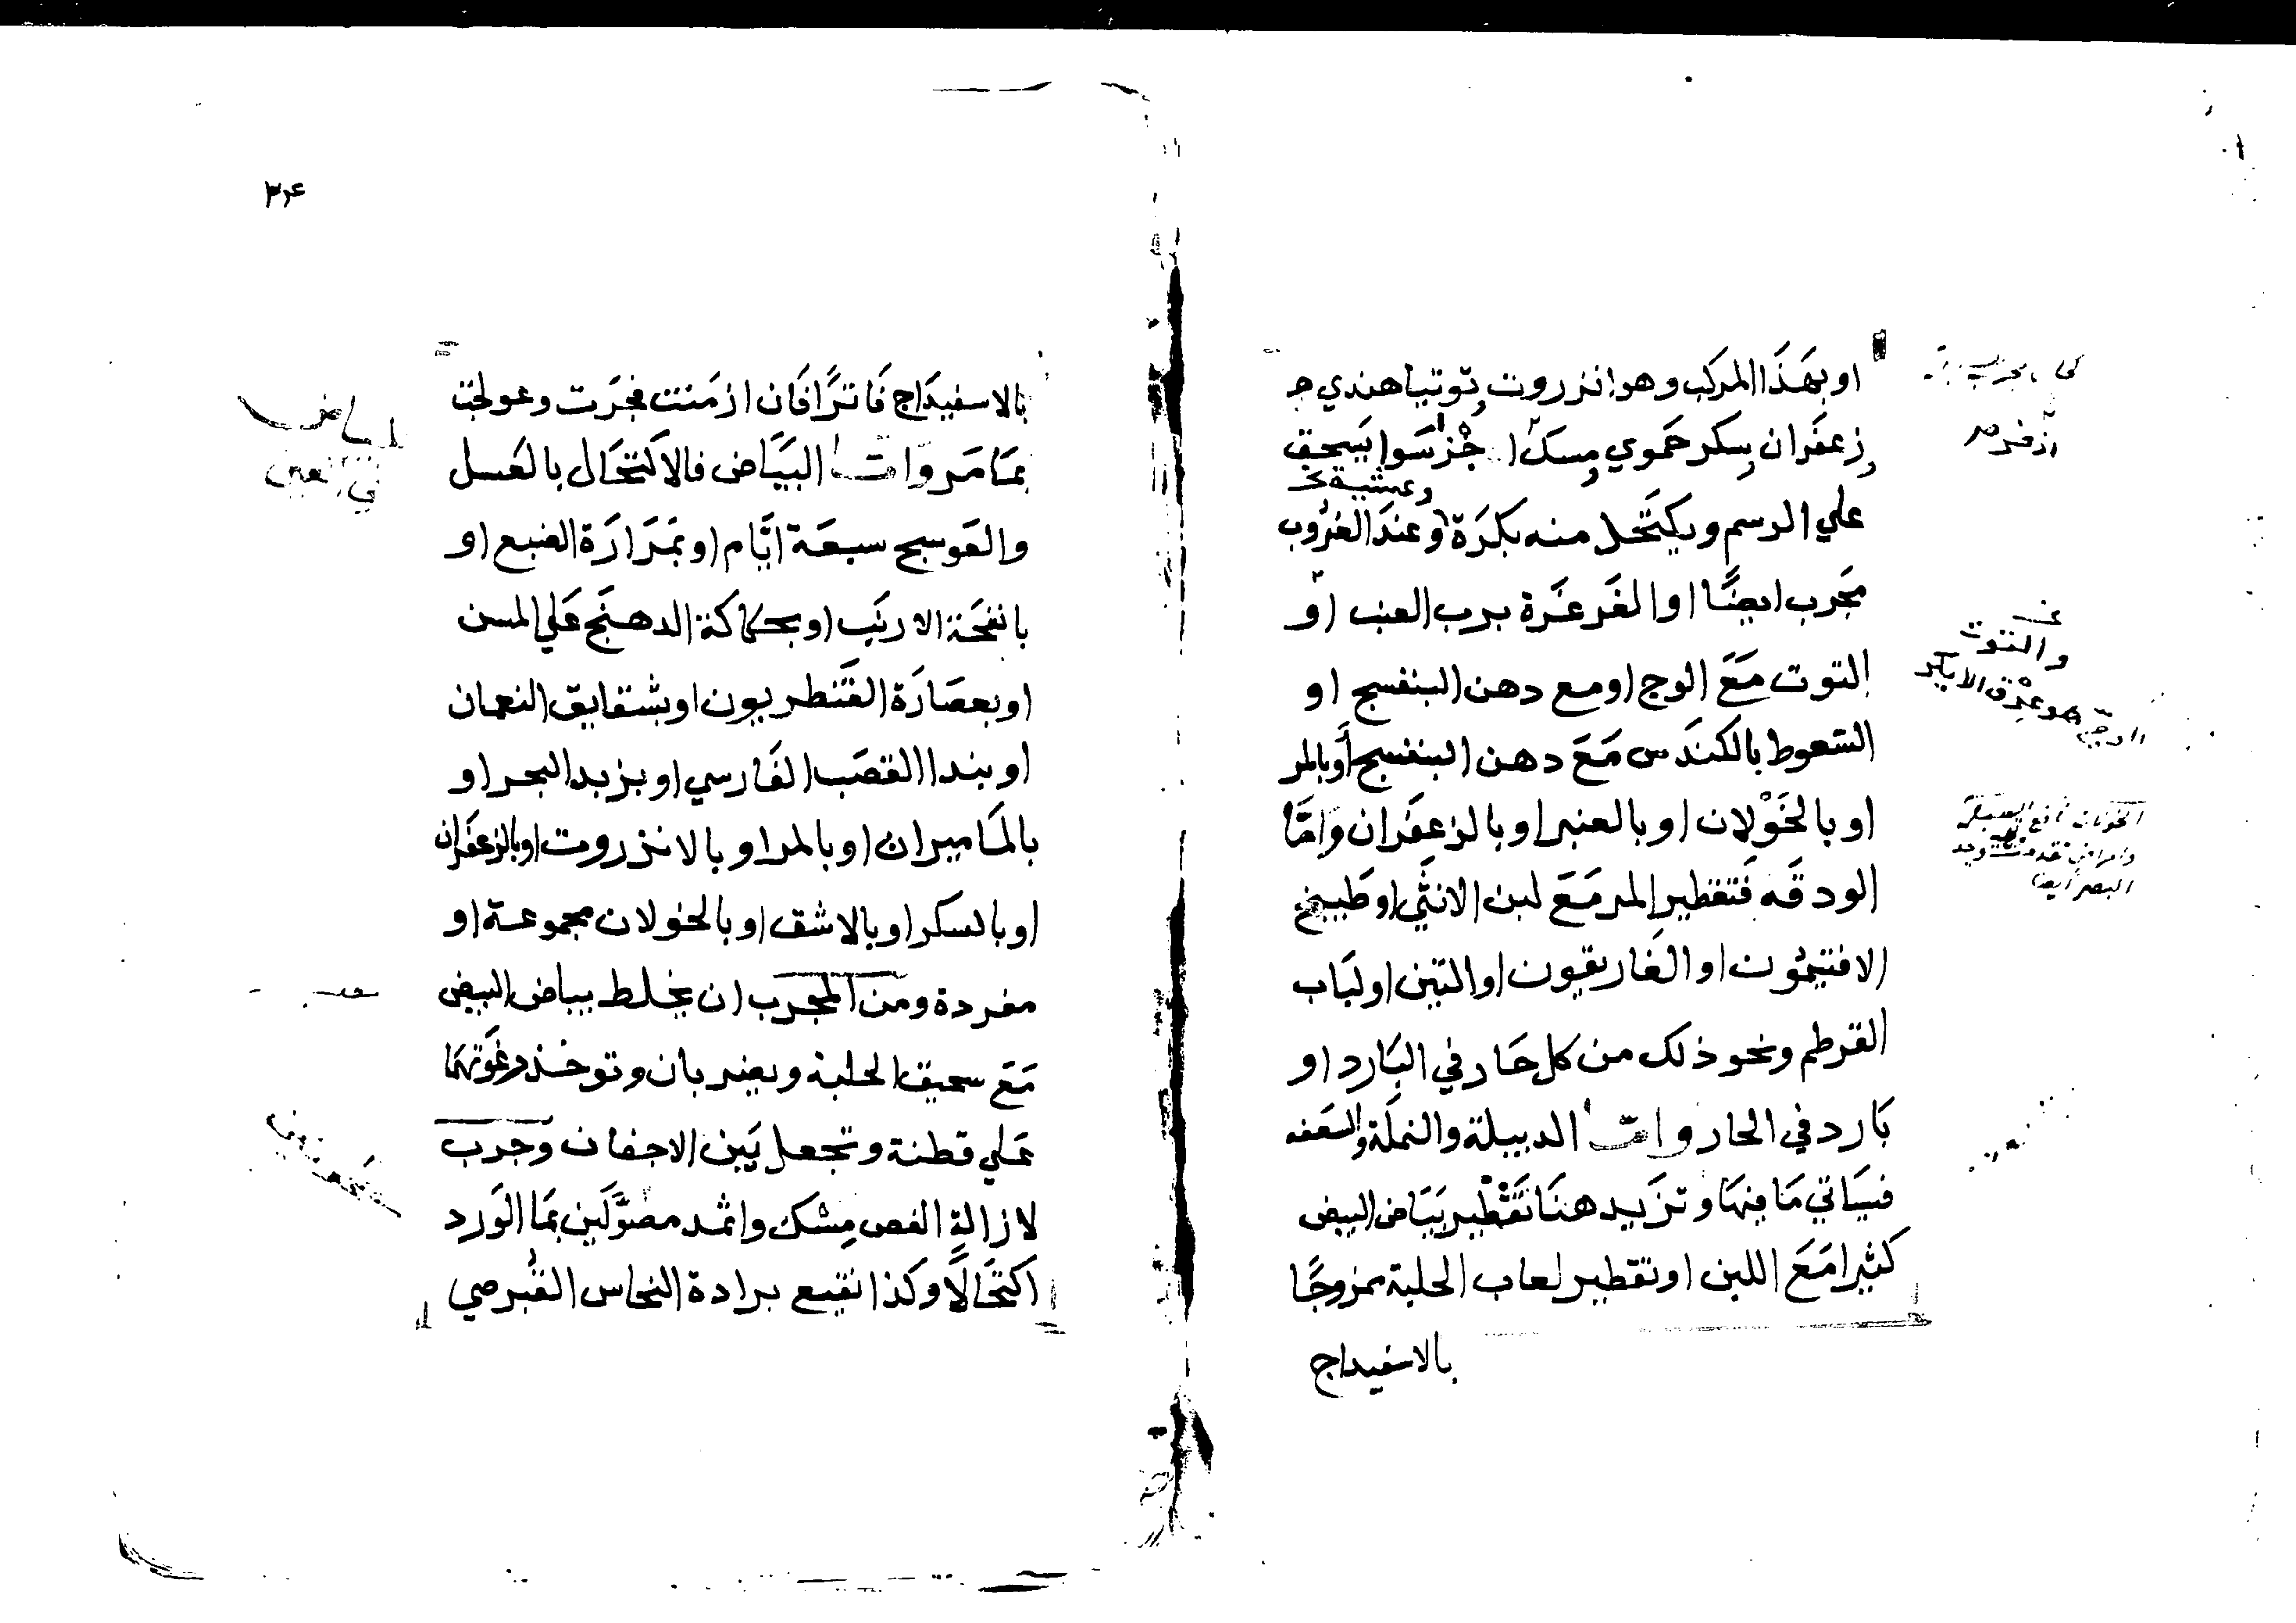 او بهَذَا المركب وهو انزروت وتوتيا هندي جـ
وزعفَران وسكر حَموي ومسك اجُزْا سَوا يَسحق
وعشية نخـ
علي الرسم ويكتَحل منه بكرَة وعندَ الغرُوب
مجَرب ايضًا او الغَرغَرة برب العنب او
التوت مَعَ الوج او مع دهن البنفسج او
السَعوط بالكندَس مَعَ دهن البنفسج أو بالمر
او بالخَوْلان او بالعنبر او بالزعفَران وَامَّا
الودقَه فَتقطير المر مَعَ لبن الانثَي او طَبيخ
الافتيمُون او الغَاريقون او التين او لبَاب
القرطم ونحو ذلك من كل حَار في البَارد او
بَارد في الحار وامَّا الدبيلة والنملَة والسَعفه
فسيَاتي مَا فيهَا وتزيد هنَا تَقْطير بيَاض البيض
كثيرا مَعَ اللبن او تقطير لعاب الحلبة ممزوجًا
بالاسفيداج
والتوت
الوج هو عرْق الايكر
٣٤
بالاسفيدَاج فَاترًا فَان ازمَنت فجرَت وعولجَت
بمَا مَر وامَّا البيَاض فالاكتحَال بالعَسل
والعَوسج سبعَة ايَّام او بمَرَارَة الضبع او
بانفحَة الارنَب او بحكاكة الدهنَج عَلي المسن
او بعصَارَة القَنطريون او بشقايق النعمان
او بندا القصَب الفَارسي او بزبد البحر او
بالمَاميران او بالمر او بالانزروت او بالزعفَران
او بالسكر او بالاشق او بالخولان مجموعة او
مفردة ومن المجرب ان يخلط بياض البيض
مَعَ سحيق الحلبة ويضربان وتوخذ رغوَتهمَا
عَلي قطنة وتجعل بَين الاجفان وجرب
لازالة الغص مسْك واثمد مصَوَّلَين بمَا الوَرد
اكتحَالًا وكذا نقيع برادة النحاس القبرصي
بياض
في العين